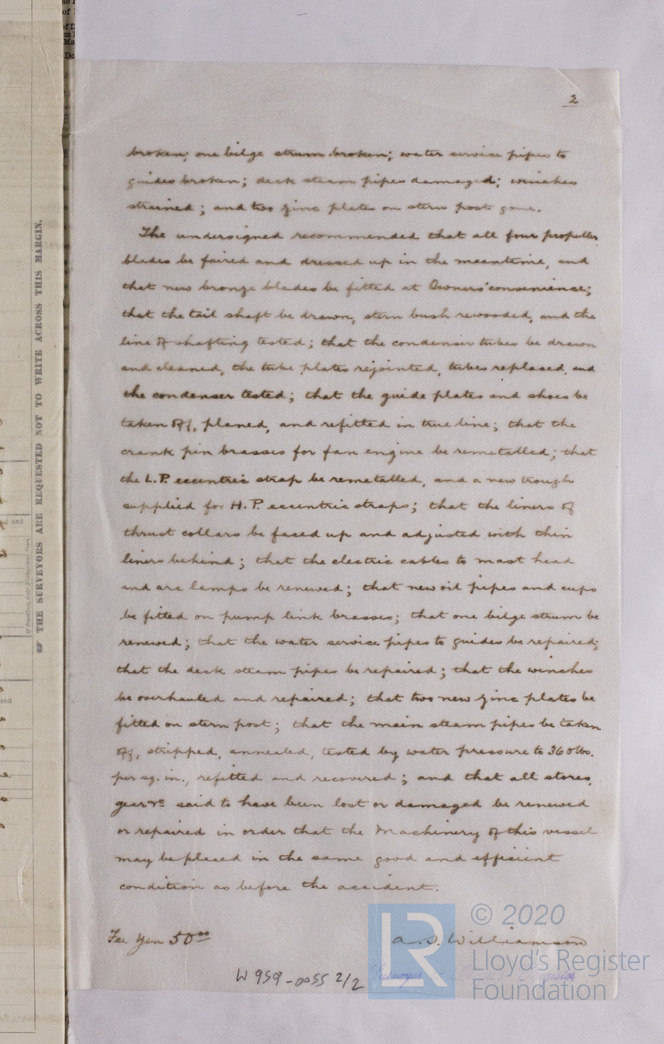 2
broken; one bilge strum broken; water service pipes to
guides broken; deck steam pipes damaged; winches
strained; and two zinc plates on stern post gone.
The undersigned recommended that all four propeller
blades be faired and dressed up in the meantime, and
that new bronze blades be fitted at Owners' convenience;
that the tail shaft be drawn, stern bush rewooded, and the
line of shafting tested; that the condenser tubes be drawn
and cleaned, the tube plates rejointed, tubes replaced, and
the condenser tested; that the guide plates and shoes be
taken off, planed, and refitted in true line; that the
crank pin brasses for fan engine be remetalled; that
the L.P. eccentric strap be remetalled, and a new trough
supplied for H.P. eccentric straps; that the liners of
thrust collars be faced up and adjusted with thin
liners behind; that the electric cables to mast head
and arc lamps be renewed; that new oil pipes and cups
be fitted on pump link brasses; that one bilge strum be
renewed; that the water service pipes to guides be repaired;
that the deck steam pipes be repaired; that the winches
be overhauled and repaired; that two new zinc plates be
fitted on stern post; that the main steam pipes be taken
off, stripped, annealed, tested by water pressure to 360 lbs.
per sq. in., refitted and recovered; and that all stores,
gear &c said to have been lost or damaged be renewed
or repaired in order that the Machinery of this vessel
may be placed in the same good and efficient
condition as before the accident.
Fee Yen 50.00
A. S. Williamson
W959-0055 2/2
THE SURVEYORS ARE REQUESTED NOT TO WRITE ACROSS THIS MARGIN.
LR
© 2020
Lloyd's Register
Foundation